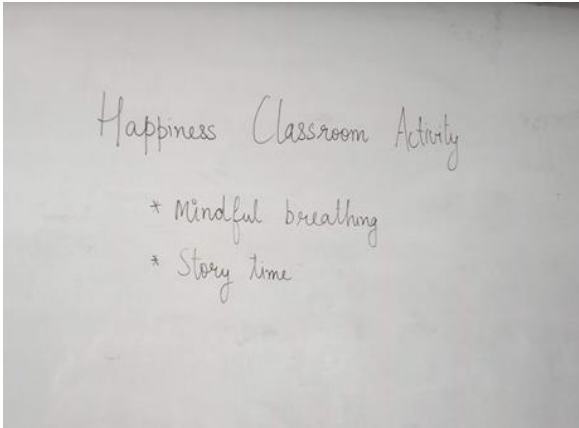 Happiness Classroom Activity
* Mindful breathing
* Story time